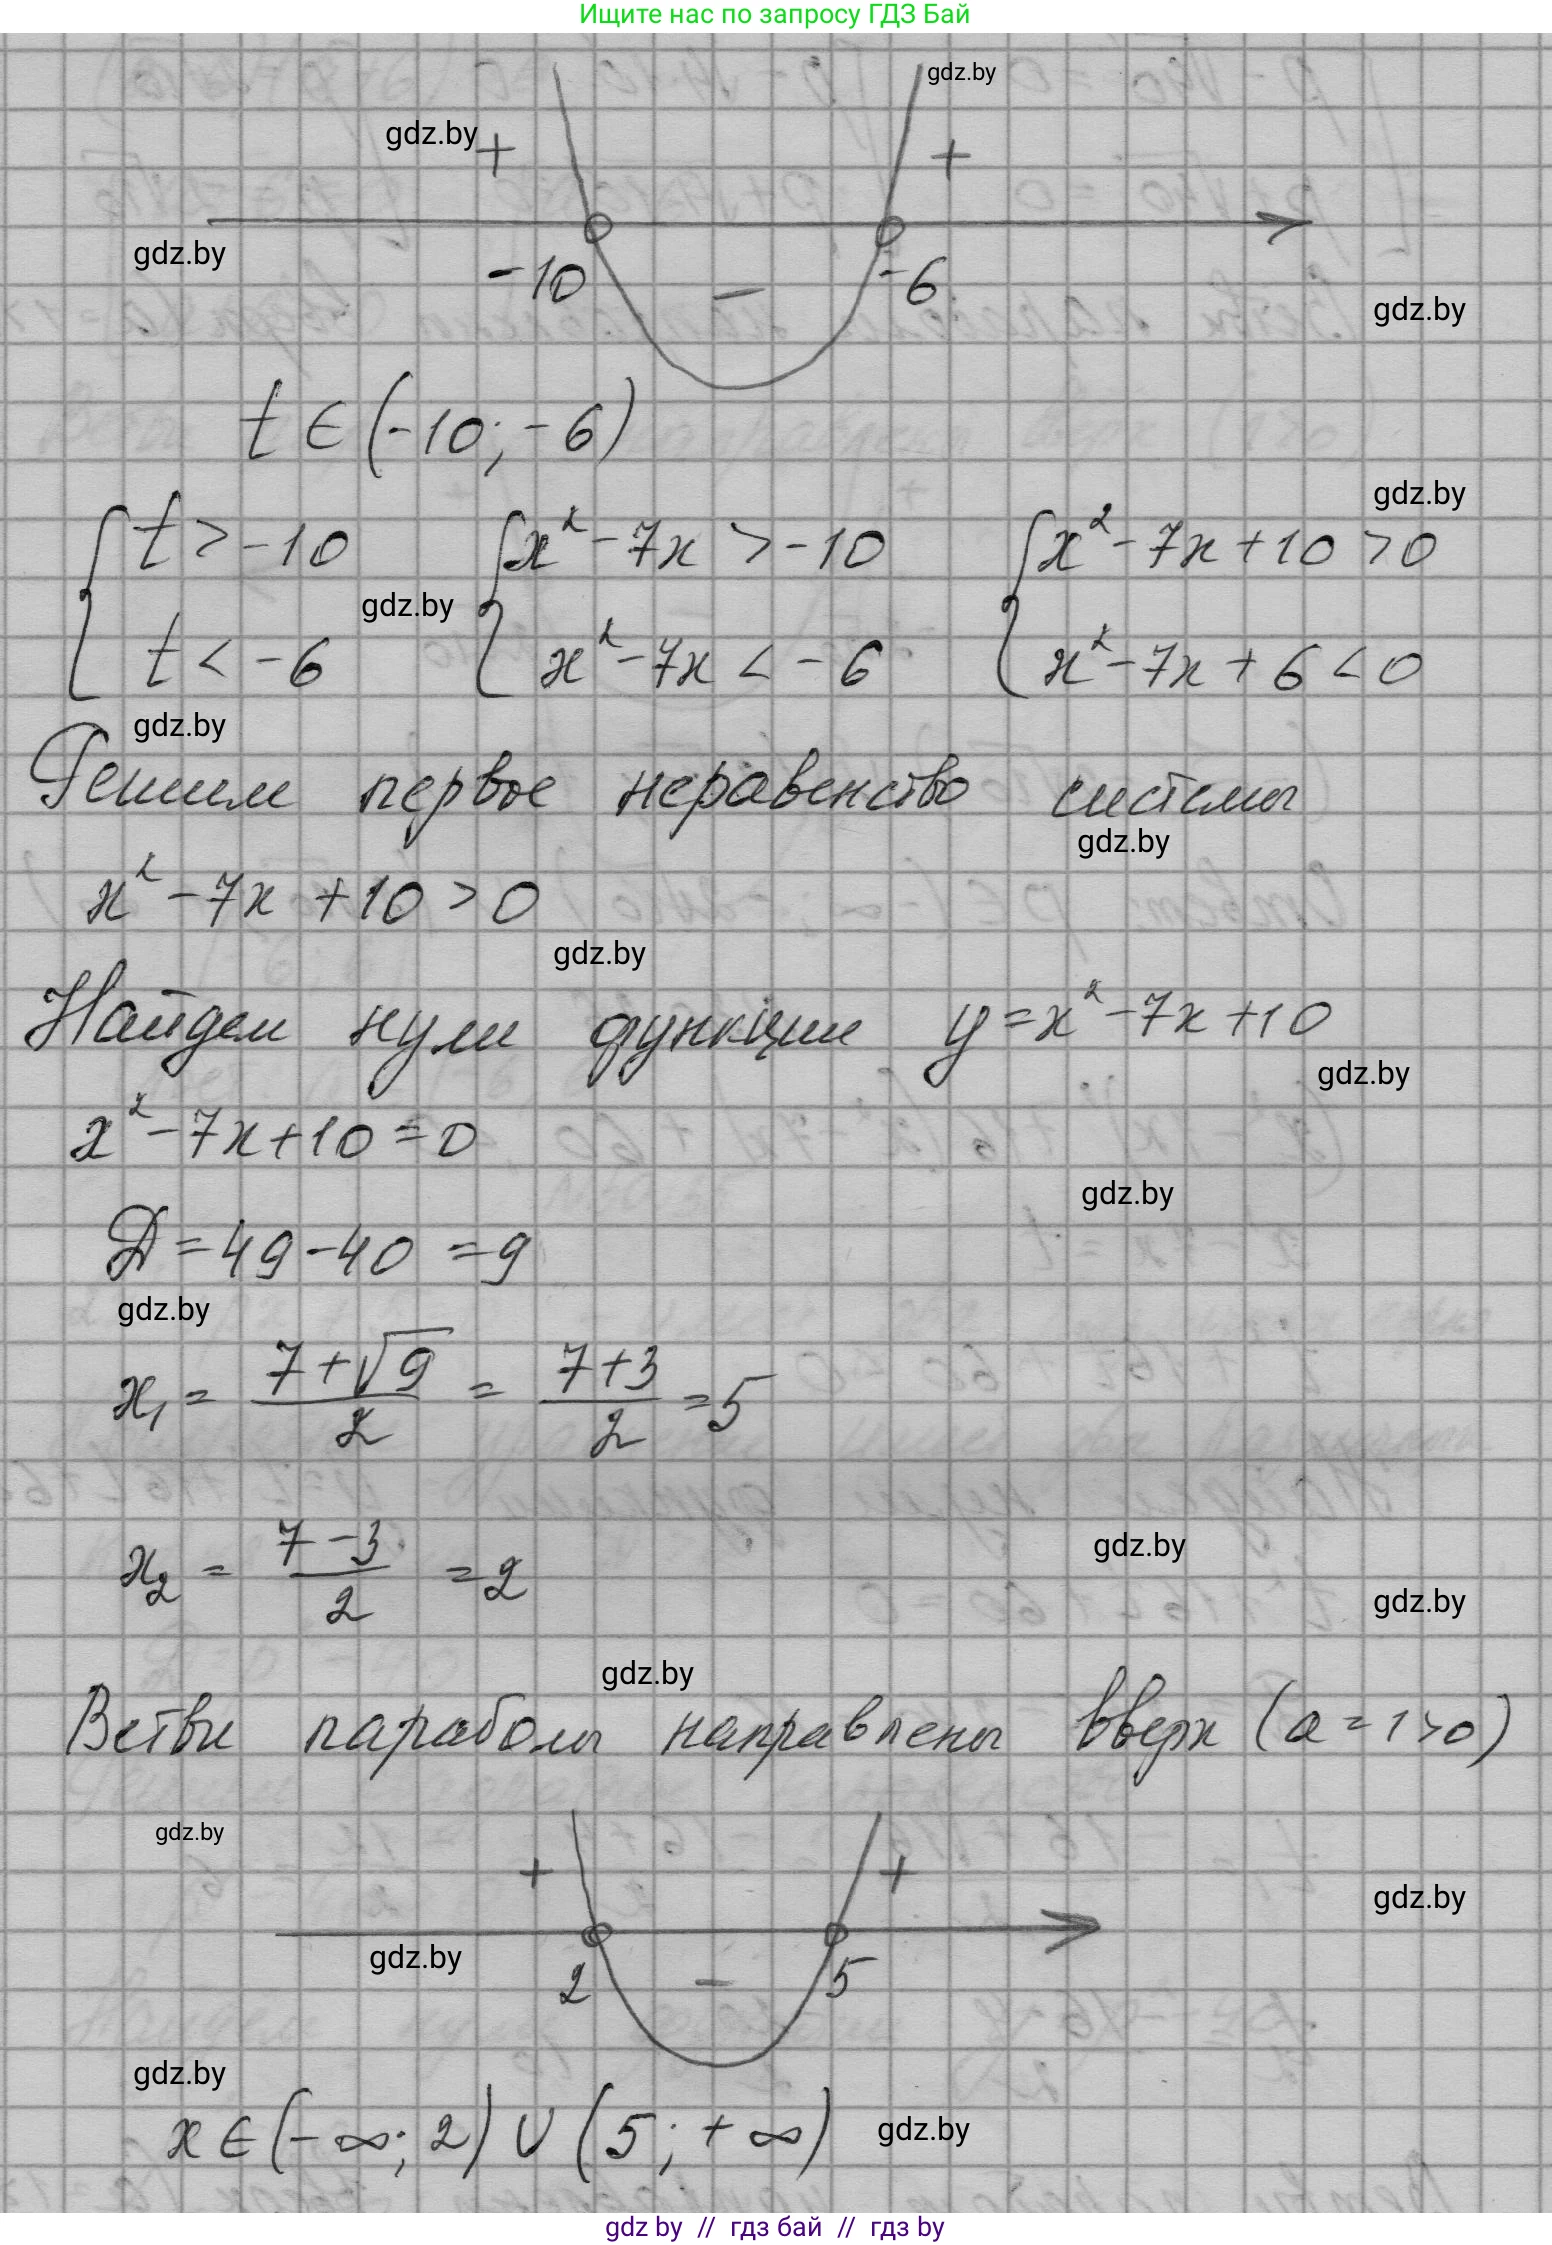 Ищите нас по запросу ГДЗ Бай
gdz.by
gdz.by
+ +
gdz.by
-10 - -6
gdz.by
t ∈ (-10; -6)
gdz.by
{ t > -10 { x² - 7x > -10 { x² - 7x + 10 > 0
gdz.by
t < -6 x² - 7x < -6 x² - 7x + 6 < 0
gdz.by
Решим первое неравенство системы
gdz.by
x² - 7x + 10 > 0
gdz.by
Найдем нули функции y = x² - 7x + 10
gdz.by
x² - 7x + 10 = 0
gdz.by
Д = 49 - 40 = 9
gdz.by
x₁ = (7 + √9)/2 = (7 + 3)/2 = 5
x₂ = (7 - 3)/2 = 2
gdz.by
gdz.by
gdz.by
Ветви параболы направлены вверх (a = 1 > 0)
gdz.by
+ +
gdz.by
gdz.by
2 - 5
gdz.by
x ∈ (-∞; 2) ∪ (5; +∞)
gdz.by
gdz by // гдз бай // гдз by